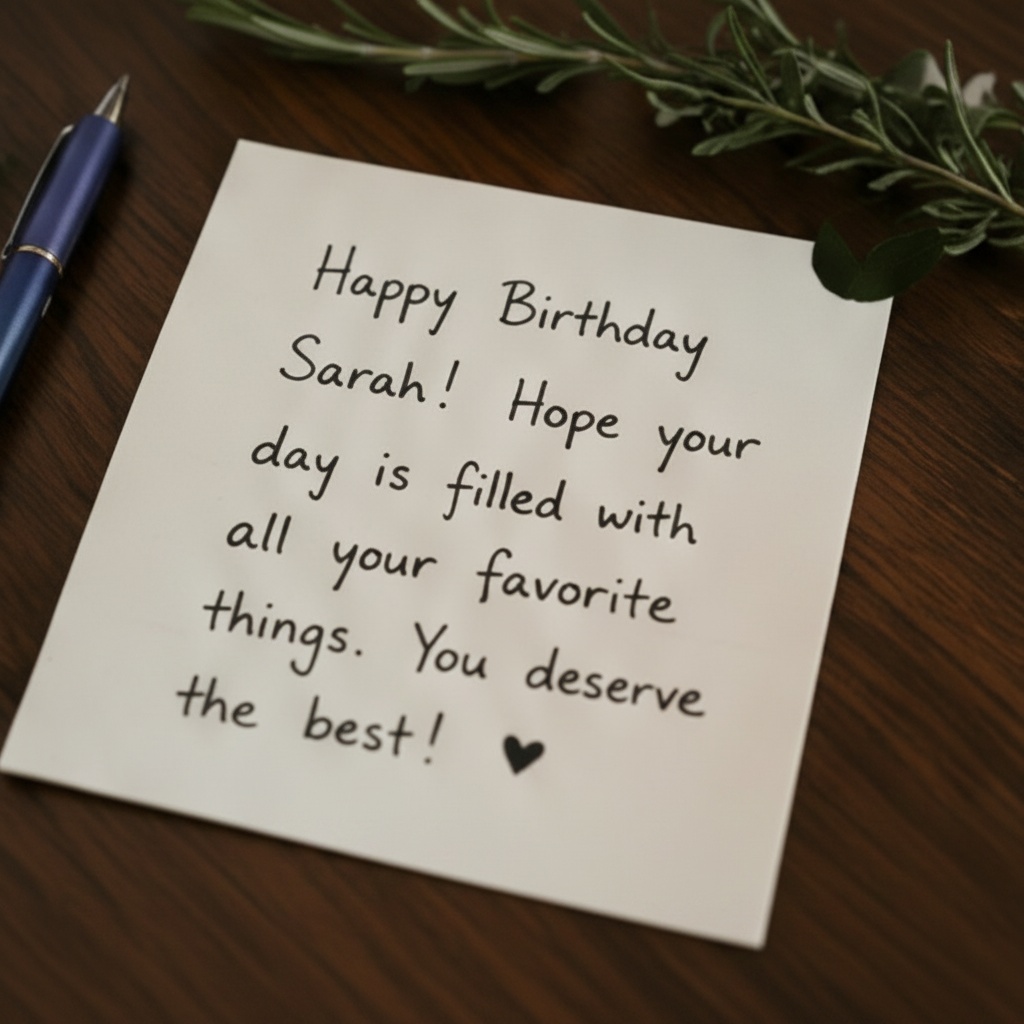 Happy Birthday
Sarah! Hope your
day is filled with
all your favorite
things. You deserve
the best! ♥